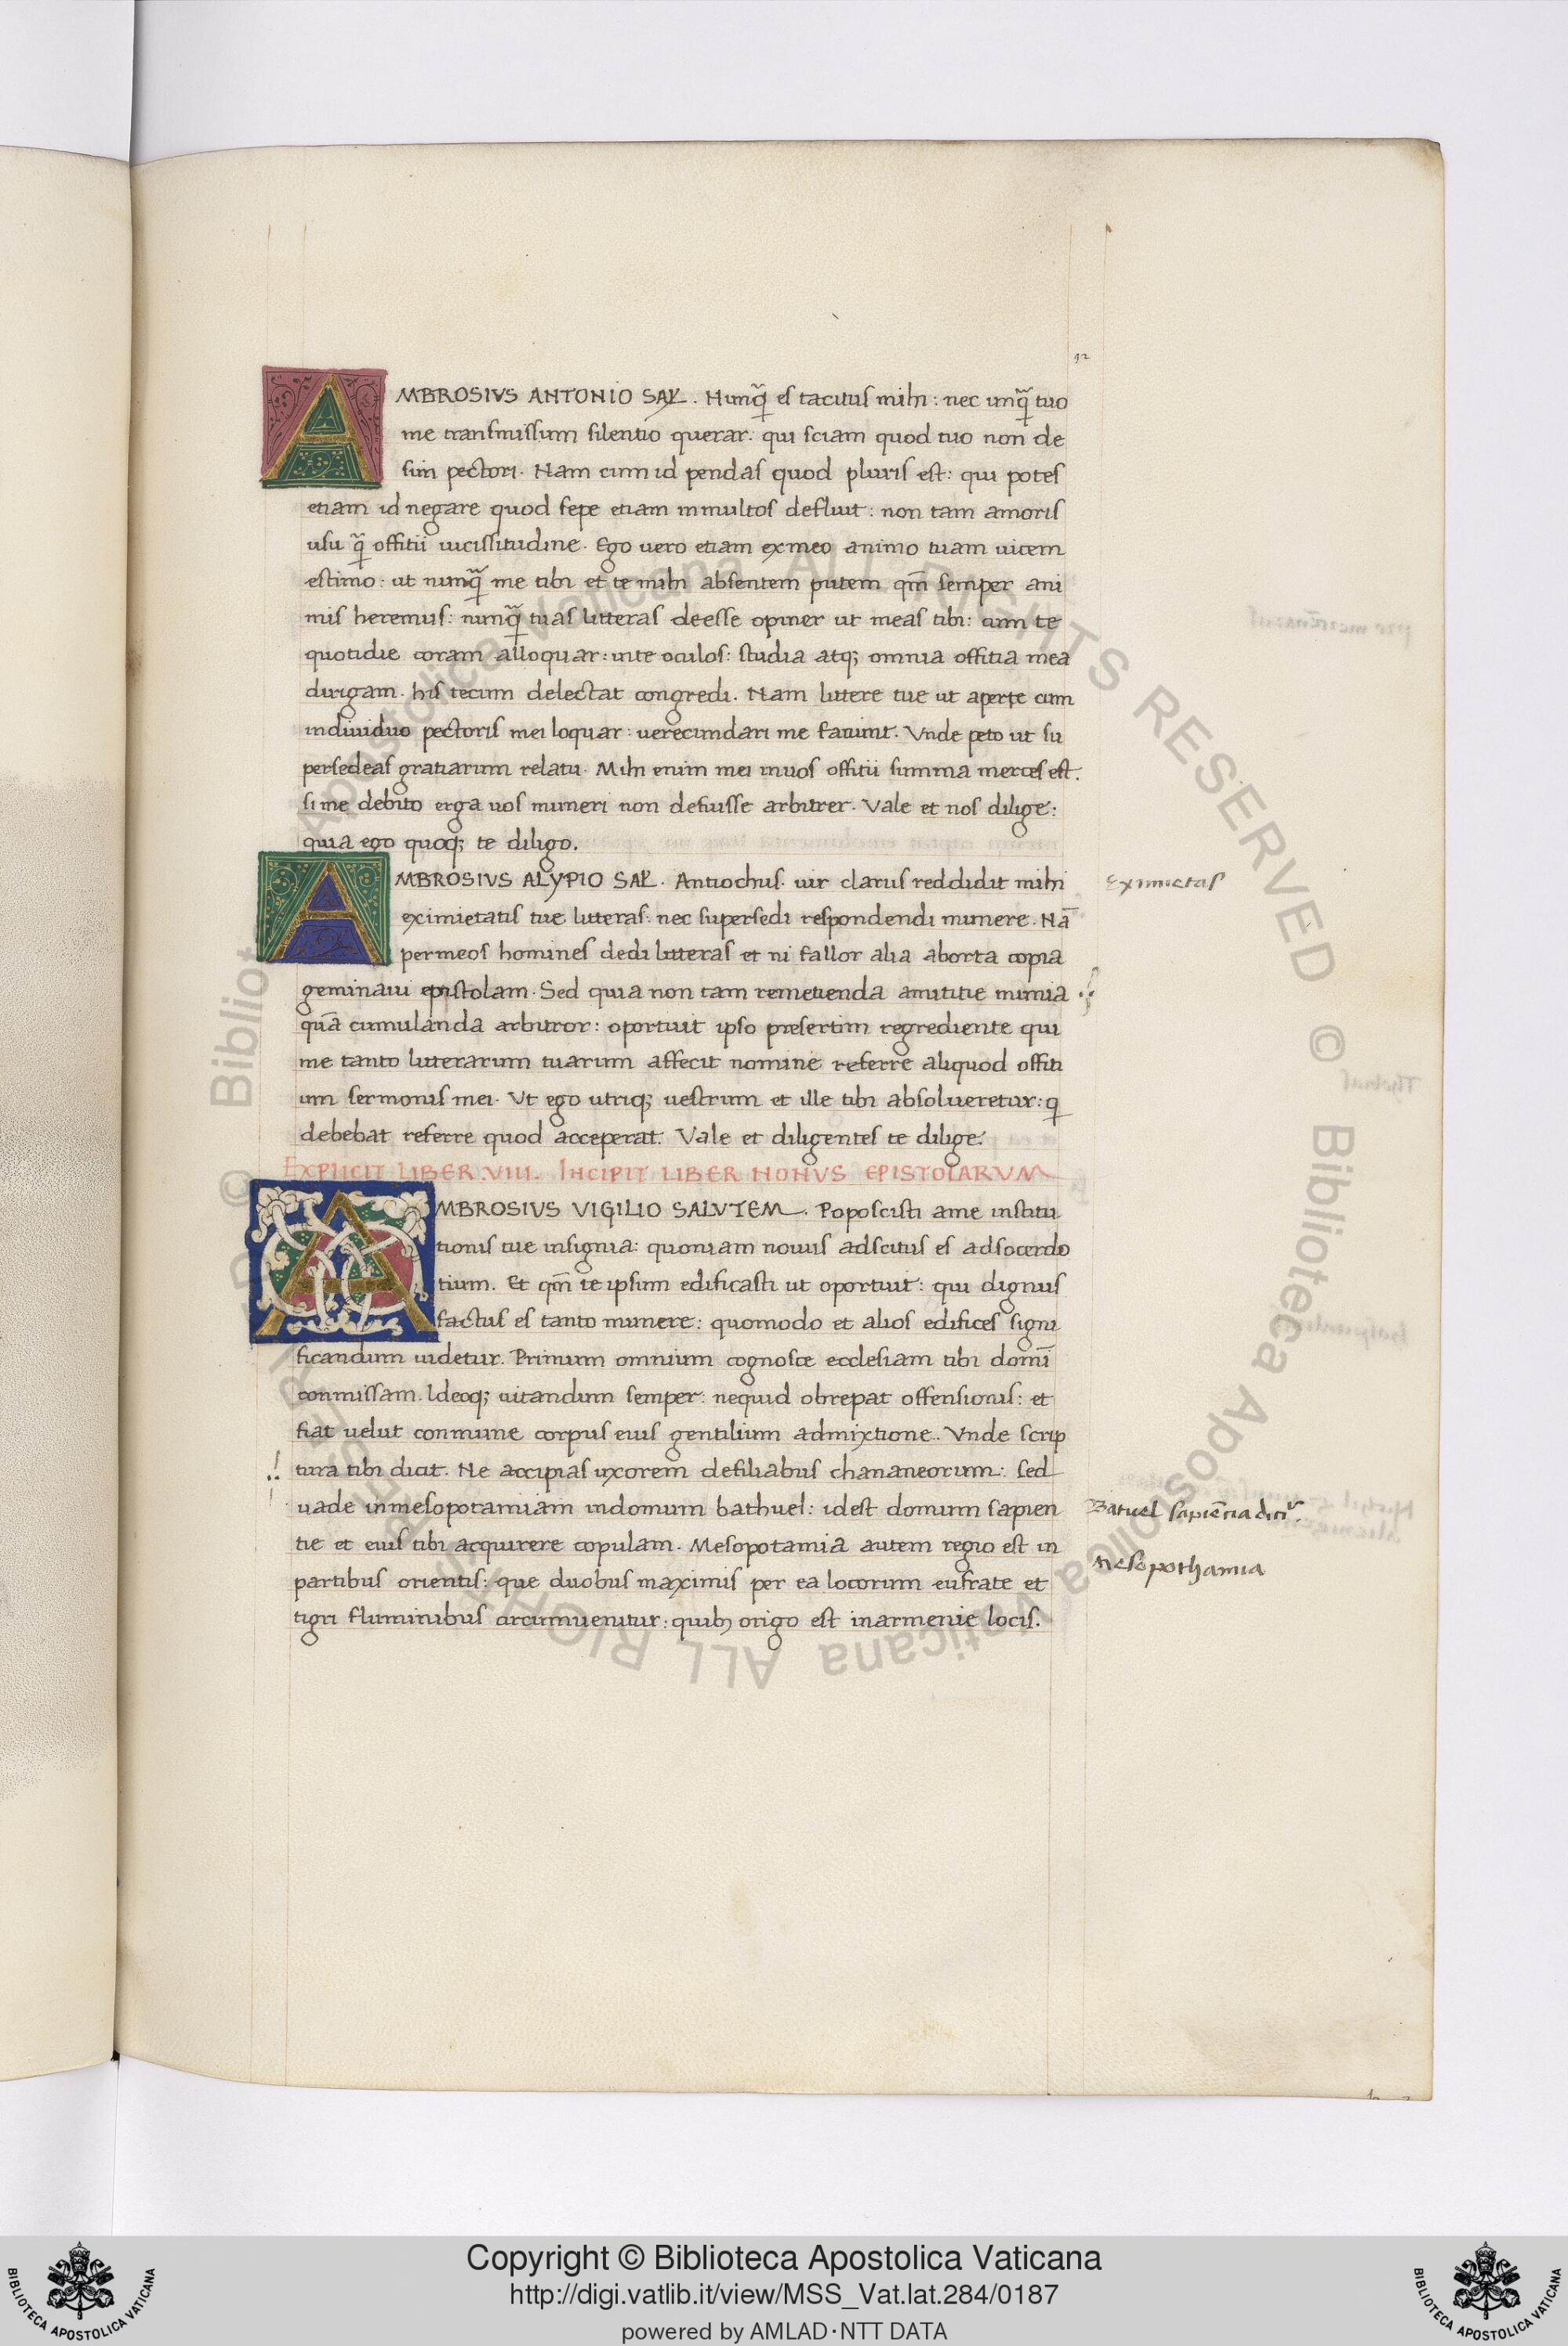 92
AMBROSIVS ANTONIO SAL. Nunq̃ es tacitus mihi: nec unq̃ tuo
me transmissum silentio querar: qui sciam quod tuo non de
sim pectori. Nam cum id pendas quod pluris est: qui potes
etiam id negare quod sepe etiam inmultos defluit: non tam amoris
usu q̃ offitii uicissitudine. Ego uero etiam exmeo animo tuam uicem
estimo: ut nunq̃ me tibi et te mihi absentem putem qm̄ semper ani
mis heremus: nunq̃ tuas litteras deesse opiner ut meas tibi: cum te
quotidie coram alloquar: inte oculos: studia atq; omnia offitia mea
dirigam. his tecum delectat congredi. Nam littere tue ut aperte cum
indiuiduo pectoris mei loquar: uerecundari me faciunt. Vnde peto ut su
persedeas gratiarum relatu. Mihi enim mei inuos offitii summa merces est.
si me debito erga uos muneri non defuisse arbitrer. Vale et nos dilige:
quia ego quoq; te diligo.
AMBROSIVS ALYPIO SAL. Antiochus. uir clarus reddidit mihi
Eximietas
eximietatis tue litteras: nec supersedi respondendi munere. Nā
permeos homines dedi litteras et ni fallor alia aborta copia
geminaui epistolam. Sed quia non tam remetienda amititie munia
quā cumulanda arbitror: oportuit ipso presertim regrediente qui
me tanto litterarum tuarum affecit nomine referre aliquod offiti
um sermonis mei. Vt ego utriq; uestrum et ille tibi absolueretur: q
debebat referre quod acceperat. Vale et diligentes te dilige.
EXPLICIT LIBER .VIII. INCIPIT LIBER NONVS EPISTOLARVM
AMBROSIVS VIGILIO SALVTEM. Poposcisti ame institu
tionis tue insignia: quoniam nouus adscitus es adsocerdo
tium. Et qm̄ te ipsum edificasti ut oportuit: qui dignus
factus es tanto munere: quomodo et alios edifices signi
ficandum uidetur. Primum omnium cognosce ecclesiam tibi domī
conmissam. Ideoq; uitandum semper: nequid obrepat offensionis: et
fiat uelut conmune corpus eius gentilium admixtione. Vnde scrip
tura tibi dicit. Ne accipias uxorem defiliabus chananeorum: sed
uade inmesopotamiam indomum bathuel: idest domum sapien
Batuel sapiētia dicit᷑.
tie et eius tibi acquirere copulam. Mesopotamia autem regio est in
Mesopothamia
partibus orientis: que duobus maximis per ea locorum eufrate et
tigri fluminibus circumuenitur: quib; origo est inarmenie locis.
© Biblioteca Apostolica Vaticana ALL RIGHTS RESERVED
Copyright © Biblioteca Apostolica Vaticana
http://digi.vatlib.it/view/MSS_Vat.lat.284/0187
powered by AMLAD·NTT DATA
BIBLIOTECA APOSTOLICA VATICANA
BIBLIOTECA APOSTOLICA VATICANA